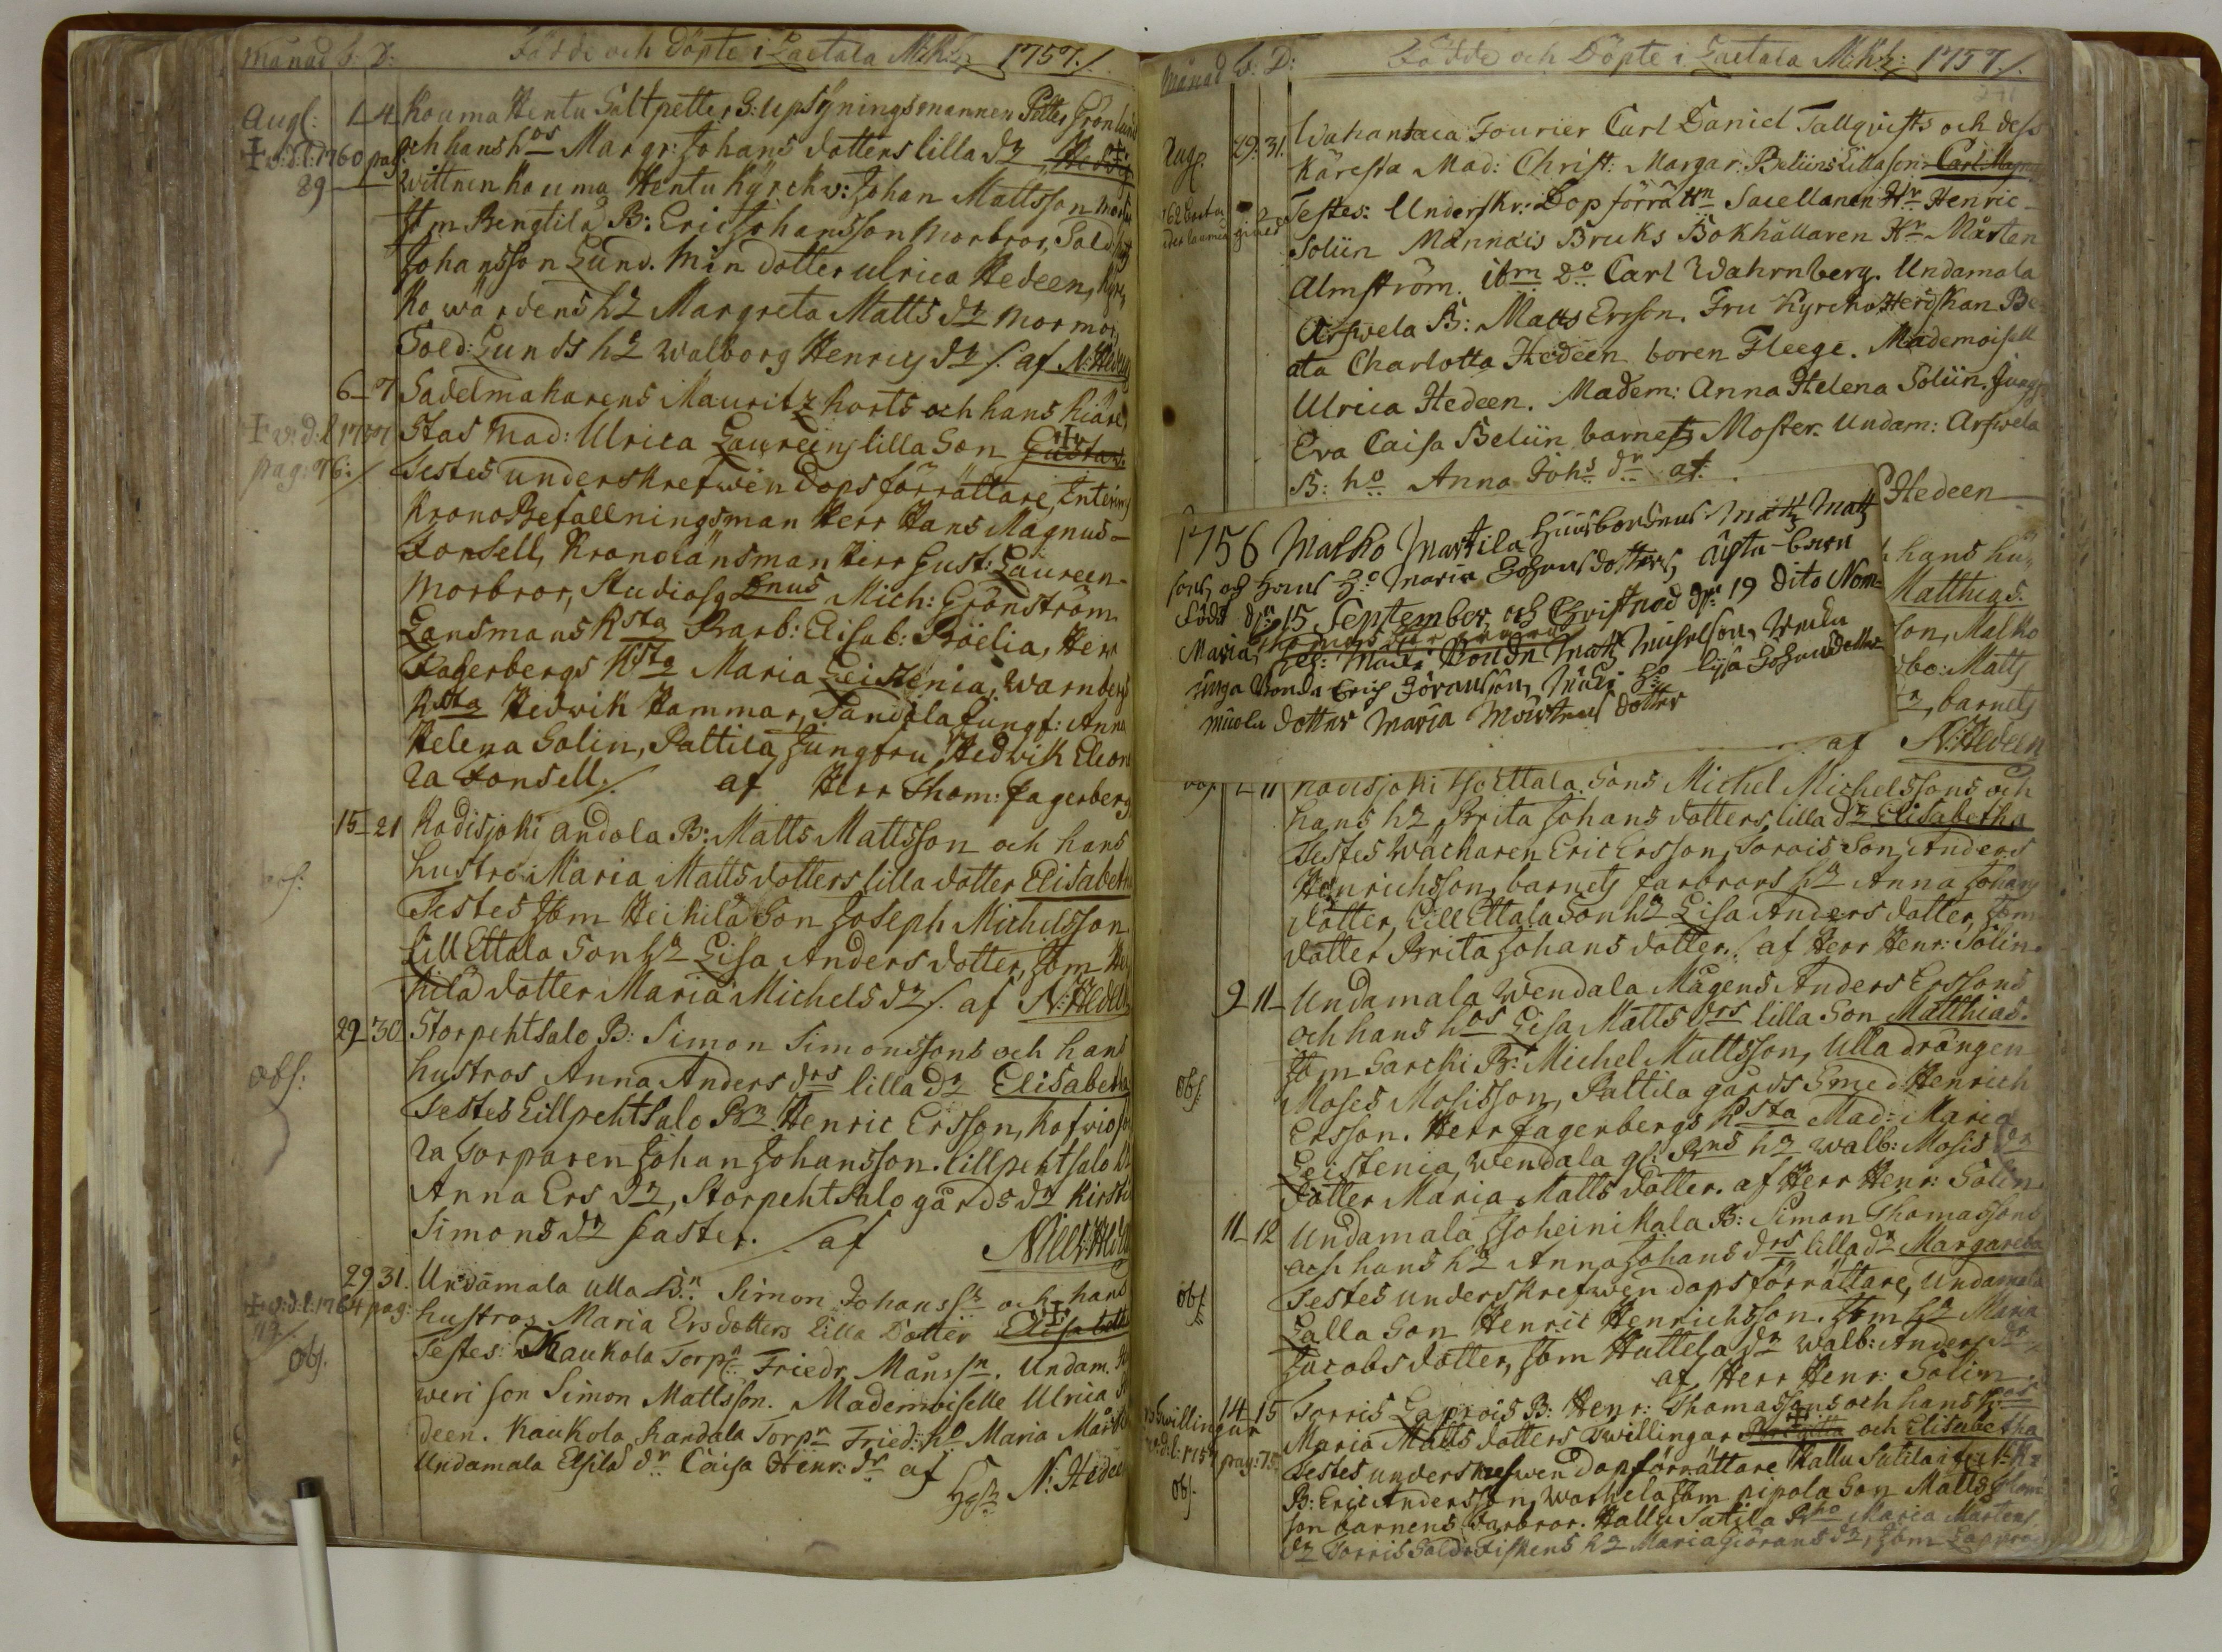 Månad b: D: Födde och Döpte i Laetala M:K: 1757./.
Aug: 1 4 Kouma Hentu Saltpetter S: upsyningsmannen Petter Grönlund
+ v:d:l:1760 pag: och hans hos Margr: Johans dotters lilla dr Hedvig
89 Wittnen Kouma Hentu Kyrckv: Johan Mattsson
Ibm Bengtilä B: Eric Johansson Morbror, Sold
Johansson Lund. Min dotter Ulrica Hedeen, Kyrc
ko wärdens hr Margreta Matts dr mormor,
Sold: Lunds hr Walborg Henrics dr /. af N: Hedeen
6 7 Sadelmakarens Mauritz Korts och hans Kiäre
+ v:d:l 1757 stas Mad: Ulrica Laureens lilla Son Gustav.
pag: 76: / Testes underskrefwen dops förrättare, Interims
KronoBefallningsman Herr Hans Magnus
Fonsell, Kronolänsman Herr Gust: Laureen
Morbror, Studiosg Dnus Mich: Grönström
Länsmans Ksta Barb: Elisab: Pröelia, Herr
Fagerbergs Ksta Maria Leistenia, Warnbergs
Ksta Hedwik Hammar, Pandila Jungf: Anna
Helena Solin, Paltila Jungfru Hedwik Eleono
ra Fonsell./. af Herr Thom: Fagerberg
15 21 Kodisjoki Andola B: Matts Mattsson och hans
hustro Maria Matts dotters lilla dotter Elisabeth
Testes Ibm Heikilä Son Joseph Michelsson
Lill Ettala Son hr Lisa Anders dotter, Ibm Hei
kilä dotter Maria Michels dr /. af N: Hedeen
29 30 Storpehtsalo B: Simon Simonssons och hans
obs: hustros Anna Anders drs lilla dr Elisabetha
Testes Lillpehtsalo Br Henric Ersson,
ra Torparen Johan Johansson. Lillpehtsalo hr
Anna Ers dr, Storpehtsalo gårds dr Kirstin
Simons dr faster. /. af Nils: Hedeen
29 31. Undamala Ulla Bn Simon Johanss och hans
+ v:d:l:1764 pag: hustros Maria Ersdotters lilla Dotter Elisabeth
119 /. Testes: Kaukola Torpr Friedr Månssn. Undam.
obs. weri son Simon Mattsson. Mademoiselle Ulrica He
deen. Kaukola Kandala Torpr Fried: ho Maria Mårt
Undamala Elsilä dr Caisa Henr: dr af N: Hedeen
Månad b: D: Födde och Döpte i Laetala M:K: 1757./.
Aug: 29. 31. Wahantaca Fourier Carl Daniel Tallqvists och dess
Käresta Mad: Christ: Margar: Beliins Lilla son: Carl Magnus
Testes: Underskr: Dop förrättn Sacellanen Hr Henric
Soliin Männäis Bruks Bokhållaren Hr Mårten
Almström. ibm do Carl Wahrnberg. Undamala
Arfwela B: Matts Ersson. Fru KyrckoHerdskan Be
ata Charlotta Hedeen boren Fleege. Mademoisell
Ulrica Hedeen. Madem: Anna Helena Soliin. Jungf
Eva Caisa Beliin barnets Moster. Undam: Arfwela
B: ho Anna Johs dr af.
Hedeen
1756 Malko Marttila Husbondens Matts Matts
sons, och hans ho Maria Johansdotters, äckta barn
Född dn: 15 September, och Christnad dn: 19 dito Nom:
Maria
Maria Mårtens dotter
hans hu
Matthias.
son, Malko
bo: Matts
barnets
af N: Hedeen
11 Kodisjoki IsoEttala Sons Michel Michelssons och
hans hr Brita Johans dotters, lilla dr Elisabetha
Testes Wäckaren Eric Ersson, Sorois Son Anders
Henrichsson, barnets farbrors hr Anna Johans
dotter, Lill Ettala Son hr Lisa Anders dotter, Ibm
dotter Brita Johans dotter. /. af Herr Henr: Solin.
9 11 Undamala Wendala Mågens Anders Erssons
och hans hos Lisa Matts drs lilla Son Matthias.
Ibm Sarcki B: Michel Mattsson, Ulla drängen
obs: Moses Mosisson, Paltila gårds Smed Henrich
Ersson. Herr Fagerbergs Ksta Mad: Maria
Leistenia, Wendala gl: Bns hr Walb: Mosis dr
dotter Maria Matts dotter. af Herr Henr: Solin.
11 12 Undamala Isoheinikala B: Simon Thomassons
och hans hr Anna Johans drs lilla dr Margareta
obs: Testes underskrefwen dopsförrättare, Undamala
Lalla Son Henric Henrichsson. Ibm hr Maria
Jacobs dotter, Ibm Huttela dr Walb: Anders dr
af Herr Henr: Solin.
Twillingar 14 15 Torris Laprois B: Henr: Thomassons och hans hos
v:d:l: 1757 pag: 75 Maria Matts dotters twillingar Birgitta och Elisabetha
Testes underskrefwen dopförrättare Kallu Sutila
obs. B: Eric Andersson, Warhela Ibm pipola Son Matts Thom
son barnens farbror. Kallu Sutila Bho Maria Mårtens
dr Torris Sold: Fiskens hr Maria Giörans dr, Ibm Laprois